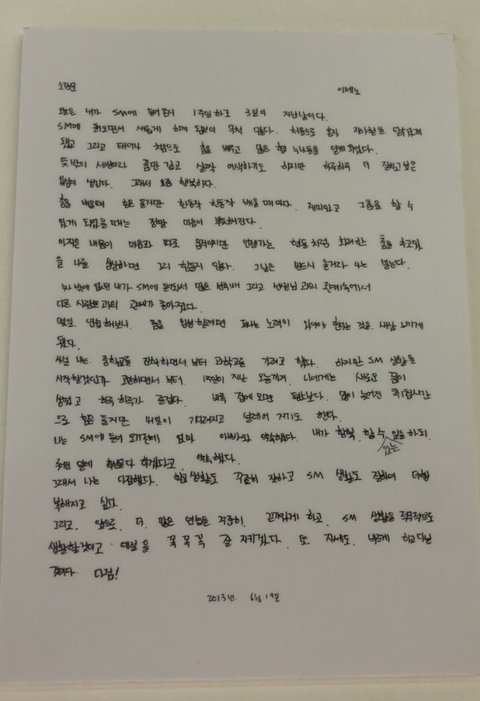 소감문
이제노
오늘은 내가 SM에 들어온지 1주일하고 3일이 지난날이다.
SM에 들어오면서 새롭게 하게 된것이 무척 많다. 처음으로 혼자 지하철을 타게
됐고 그리고 태어나 처음으로 춤을 배우고 많은 형 누나들을 알게 되었다.
뜻밖의 세상이라 조금 살짝 어색하기도 하지만 하루하루 더 잘하고 싶은
욕심이 생긴다. 그래서 요즘 행복하다.
춤을 배울때 힘은 들지만 한동작 한동작 배울 때마다. 재미있고 그 춤을 출 수
있게 되었을 때는 정말 마음이 뿌듯해진다.
아직은 내몸이 마음과 따로 움직이지만 언젠가는 형들처럼 화려한 춤을 추고있
을 나를 상상하면 그리 힘들지 않다. 그날은 반드시 올거라 나는 믿는다.
누나 밖에 없던 내가 SM에 들어와서 많은 형들과 그리고 선생님과의 관계속에서
다른 사람들과의 관계가 좋아졌다.
매일 연습해보니 춤을 잘 추려면 피나는 노력이 있어야 한다는 것을 새삼 느끼게
됐다.
사실 나는 중학교를 진학하면서 부터 과학고를 가려고 했다. 하지만 SM 생활을
시작할것인가 고민하면서 부터 1주일이 지난 오늘까지 나에게는 새로운 꿈이
생겼고 하루 하루가 즐겁다. 나는 집에 오면 피곤하다. 많이 늘어난 연습시간
으로 힘은 들지만 내일이 기다려지고 설레어 지기도 한다.
나는 SM에 들어 오기전에 엄마 아빠와 약속했다. 내가 할 수 있는 일을 하되,
최선을 다해 한다고 하겠다고 약속했다.
그래서 나는 다짐했다. 학교생활도 꾸준히 잘하고 SM 생활도 잘하여 더행
복해지고 싶다.
그리고. 앞으로. 더. 많은 연습을 꾸준히. 끈기있게 하고. SM 생활을 적극적으로
생활할것이고 예의를 꼭꼭꼭 잘 지키겠다. 또 자세도. 바르게 하고다닐
것이다. 다짐!
2013년. 6월 1일